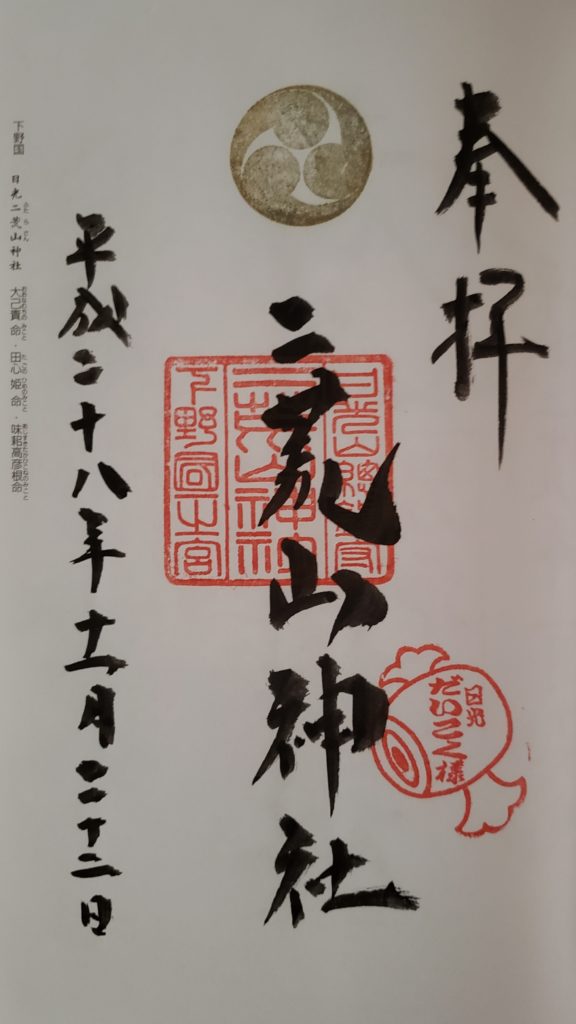 奉拝
日光山總鎮守
二荒山神社
下野國一之宮
二荒山神社
日光
だいこく様
平成二十八年十一月二十二日
下野国 日光二荒山神社 大己貴命・田心姫命・味耜高彦根命